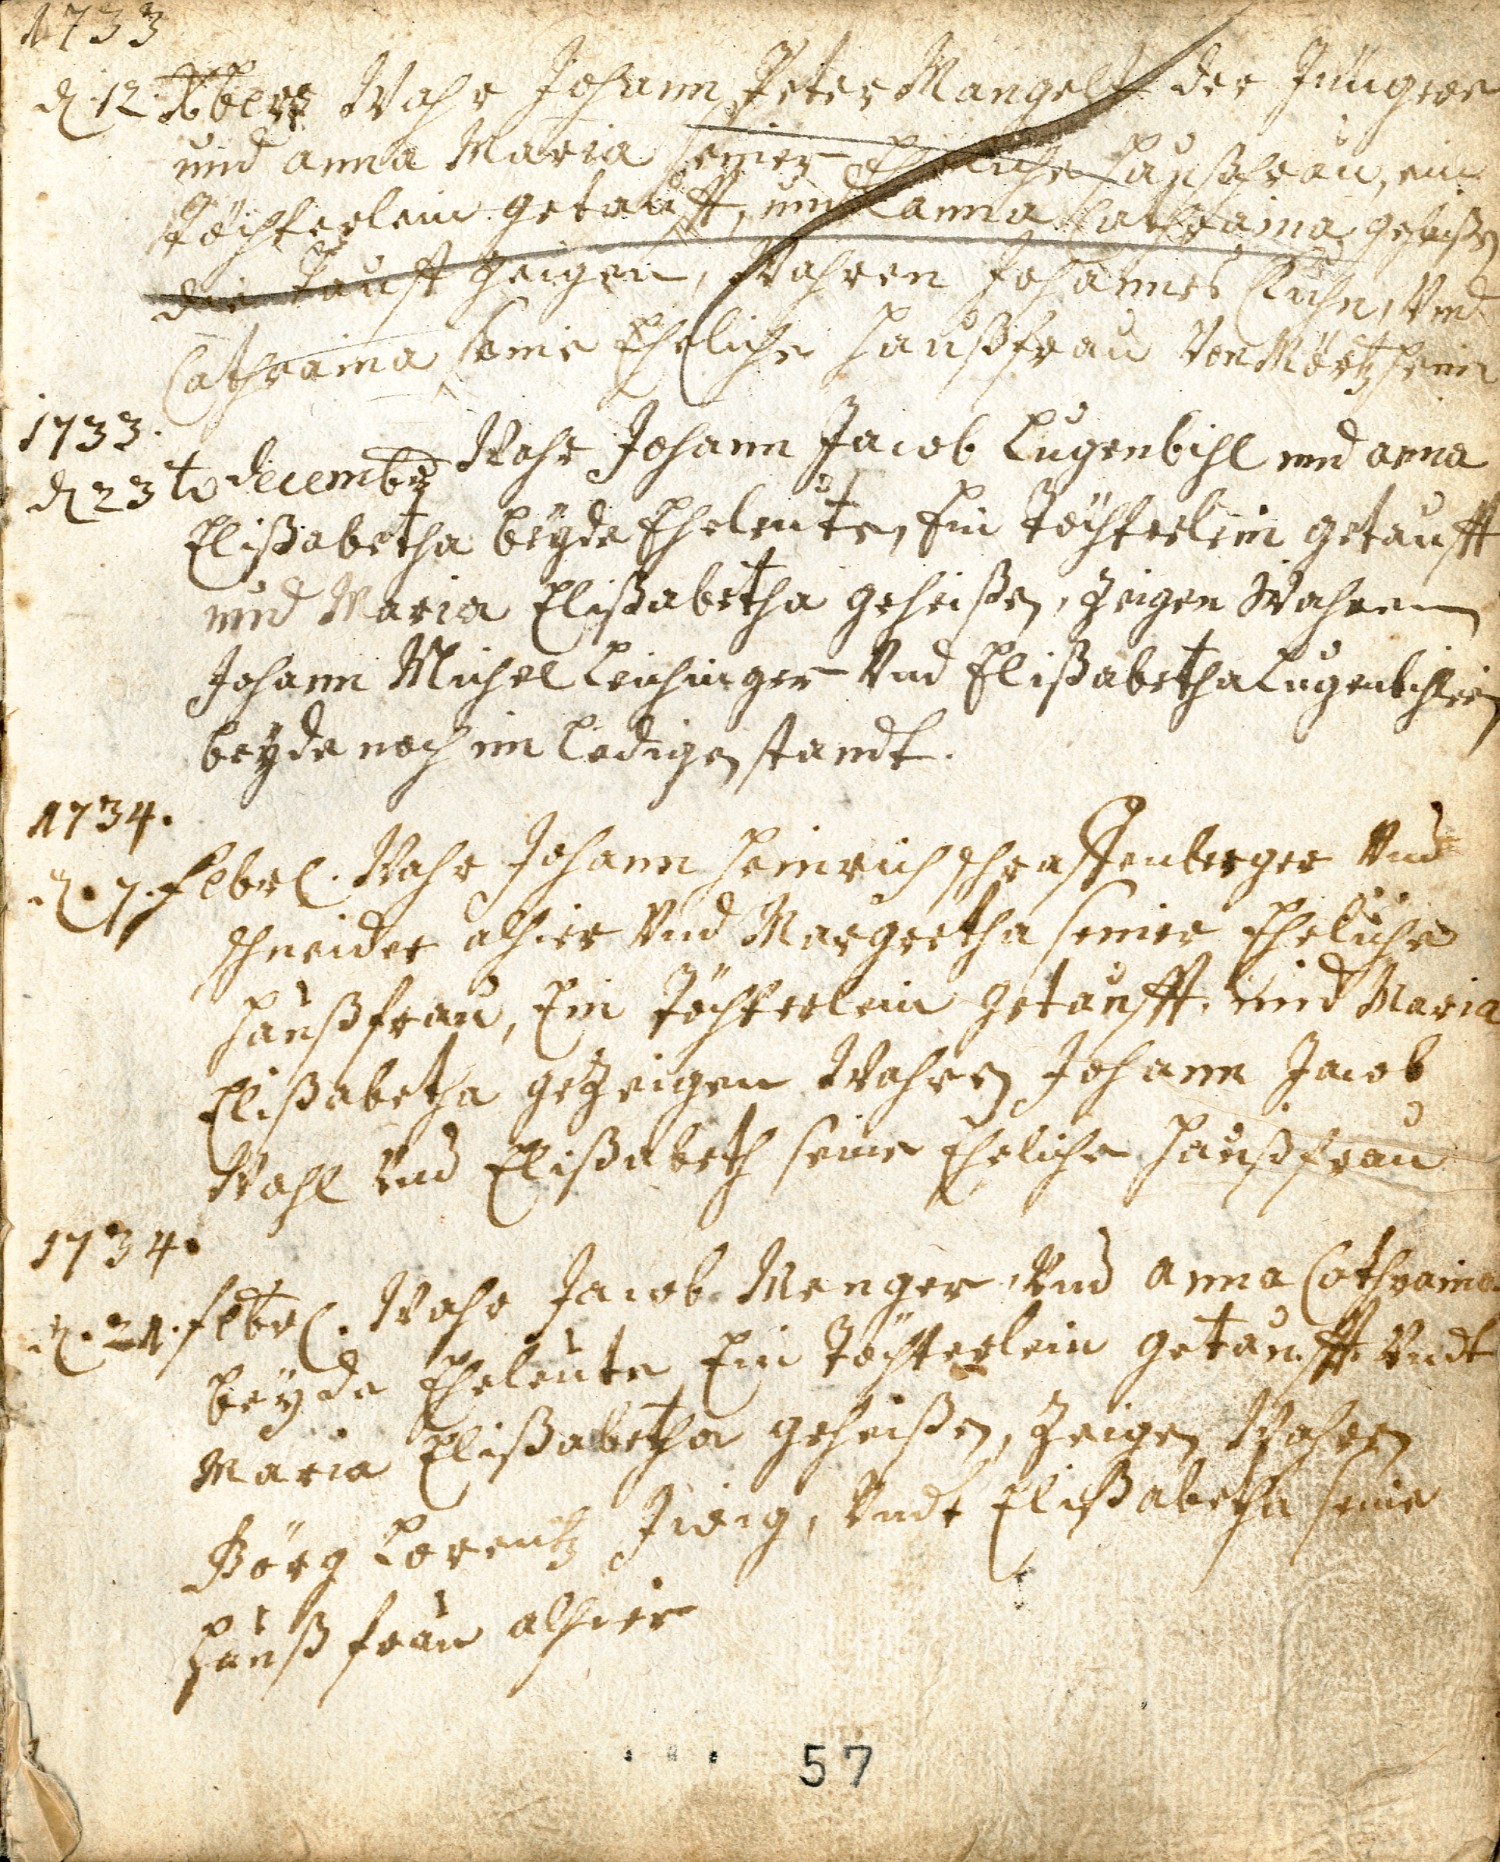 1733
d. 12 Xbery Wahr Johann Peter Mangelt der Jüngere
und anna Maria seiner Eheliche haußfrau, ein
Töchterlein getaufft, und anna Cathraina geheißen
die Tauft Zeigen, Wahren Johannes Cuhn, Und
Cathraina seine Eheliche Haußfrau Von Mörtzheim
1733.
d 23t decembr Wahr Johann Jacob Lugenbihl und anna
Elißabetha beyde Eheleute, Ein Töchterlein getaufft
und Maria Elißabetha geheißen, Zeigen Wahren
Johann Michel Leichinger Und Elißabetha Lugenbihlin
beyde noch im Ledigen standt.
1734.
d. 7. febrl. Wahr Johann Heinrich schraffenberger Und
schneider alhier Und Margretha seiner Eheliche
haußfrau, Ein Töchterlein getaufft, und Maria
Elißabetha geZeigen Wahren Johann Jacob
Wahl Und Elißabeth seine Eheliche haußfrau
1734.
d. 21. febrl. Wahr Jacob Menger Und anna Cathraina
beyde Eheleute Ein Töchterlein getaufft Undt
Maria Elißabetha geheißen, Zeigen Wahren
Görg Lorentz Undt Elißabetha seine
haußfrau alhier
57